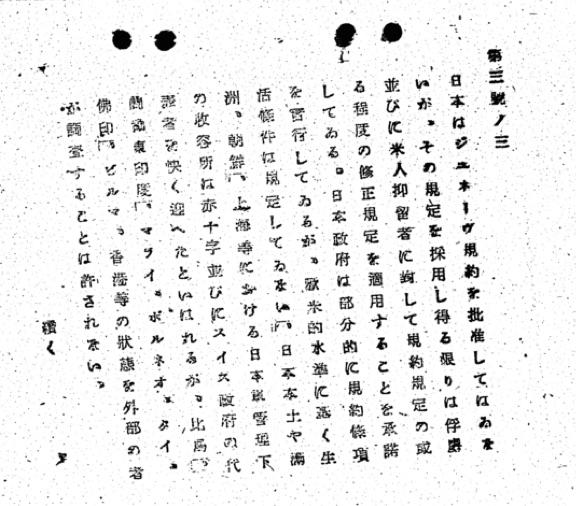 第三號ノ三
日本はジユネーヴ規約を批准してはゐな
いが、その規定を採用し得る限りは俘虜
並びに米人抑留者に對して規約規定の或
る程度の修正規定を適用することを承諾
してゐる。日本政府は部分的に規約條項
を實行してゐるが、歐米的水準に遠く生
活條件は規定してゐない。日本本土や滿
洲、朝鮮、上海等における日本軍管理下
の收容所は赤十字並びにスイス政府の代
表者を快く迎へたといはれるが、比島
東印度、マライ、ボルネオ、タイ、
佛印、ビルマ、香港等の狀態を外部の者
が調査することは許されない。
續く